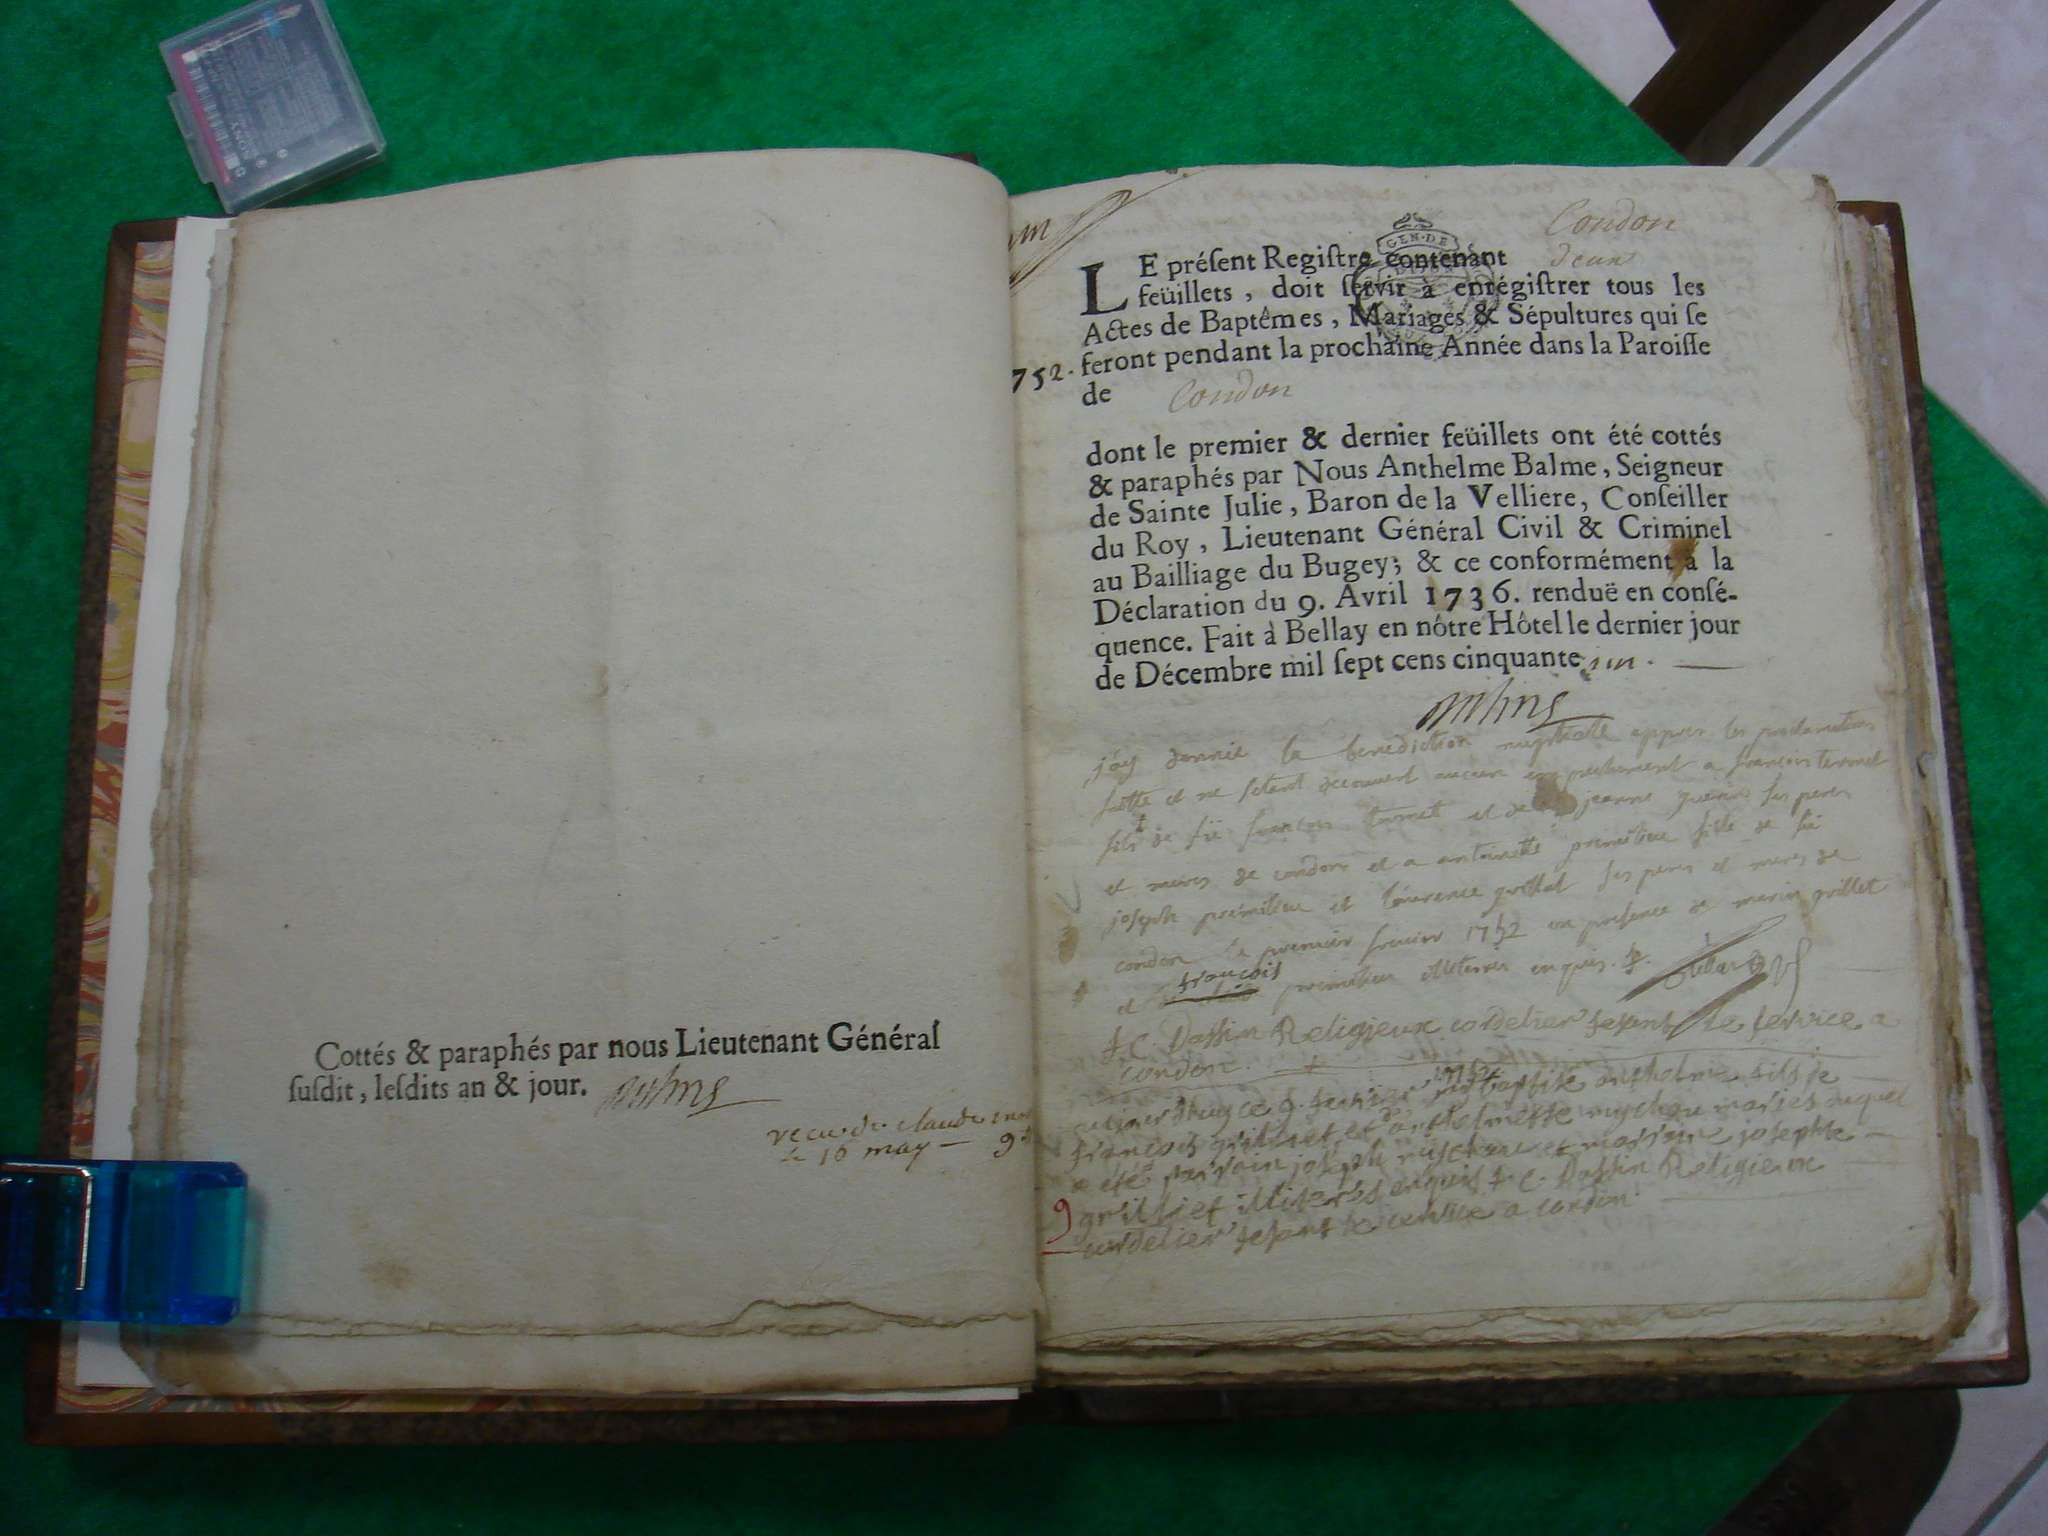 Cottés & paraphés par nous Lieutenant Général
susdit, lesdits an & jour.
recu de claude
le 16 may — 9
SONY
Condon
GEN·DE
LE présent Registre contenant deux
feüillets, doit servir à enrégistrer tous les
Actes de Baptêmes, Mariages & Sépultures qui se
752. feront pendant la prochaine Année dans la Paroisse
de Condon
dont le premier & dernier feüillets ont été cottés
& paraphés par Nous Anthelme Balme, Seigneur
de Sainte Julie, Baron de la Velliere, Conseiller
du Roy, Lieutenant Général Civil & Criminel
au Bailliage du Bugey; & ce conformément à la
Déclaration du 9. Avril 1736. renduë en consé-
quence. Fait à Bellay en nôtre Hôtel le dernier jour
de Décembre mil sept cens cinquante un.
j'ay donné la benediction nuptialle appres les proclamations
faitte et ne setant decouvert aucun empechement a francois
fils de fü francois et de jeanne guerin ses peres
et meres de condon et a antoinette fille de fü
joseph et laurence grillet ses peres et meres de
condon le premier fevrier 1752 en presence de marin grillet
et francois enquis.
f. C. Dassin Religieux cordelier fesant le service a
condon.
1752
baptisé anthelme fils de
francois grilliet et d'anthelmette mariés auquel
a été parrain joseph et marraine josephte
9 grilliet illiterés enquis f. C. Dassin Religieux
cordelier fesant le service a condon